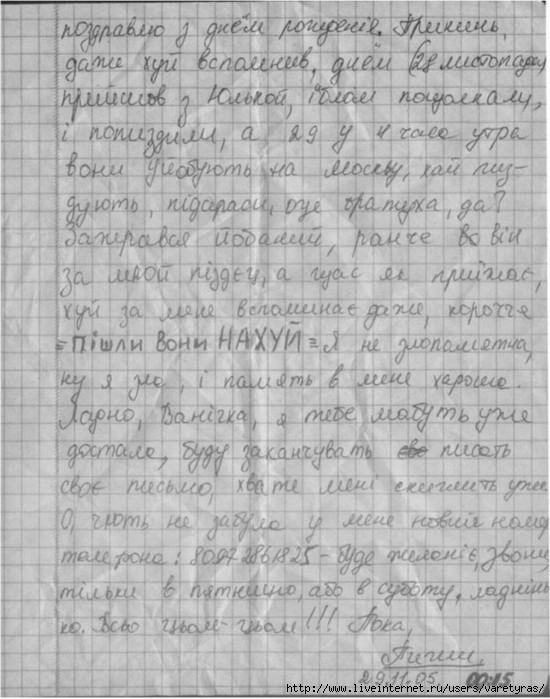 поздравлю з днём рожденія. Прикинь,
даже хуй вспомнив, днём (28 листопада)
прийшов з Юлькой, і потолкали,
і попиздили, а 29 у 4 часа утра
вони уйобують на Москву, хай пиз-
дують, підараси, оце братуха, да?
Зажрався йобаний, ранче во він
за мной піздєц, а щас як приїжає,
хуй за мене вспоминає даже, корочє
= Пішли вони НАХУЙ = Я не злопамятна,
ну я зла, і память в мене хароша.
Ладно, Ванічка, я тебе мабуть уже
достала, буду заканчувать писать
своє письмо, хвате мені скиглить уже.
О, чють не забула у мене новий номер
талєфона: 80972861825 - буде желаніє, звони,
тільки в пятницю, або в суботу, ладнінь-
ко. Всьо цьом-цьом!!! Пока,
29.11.05. 00:15
http://www.liveinternet.ru/users/varetyras/